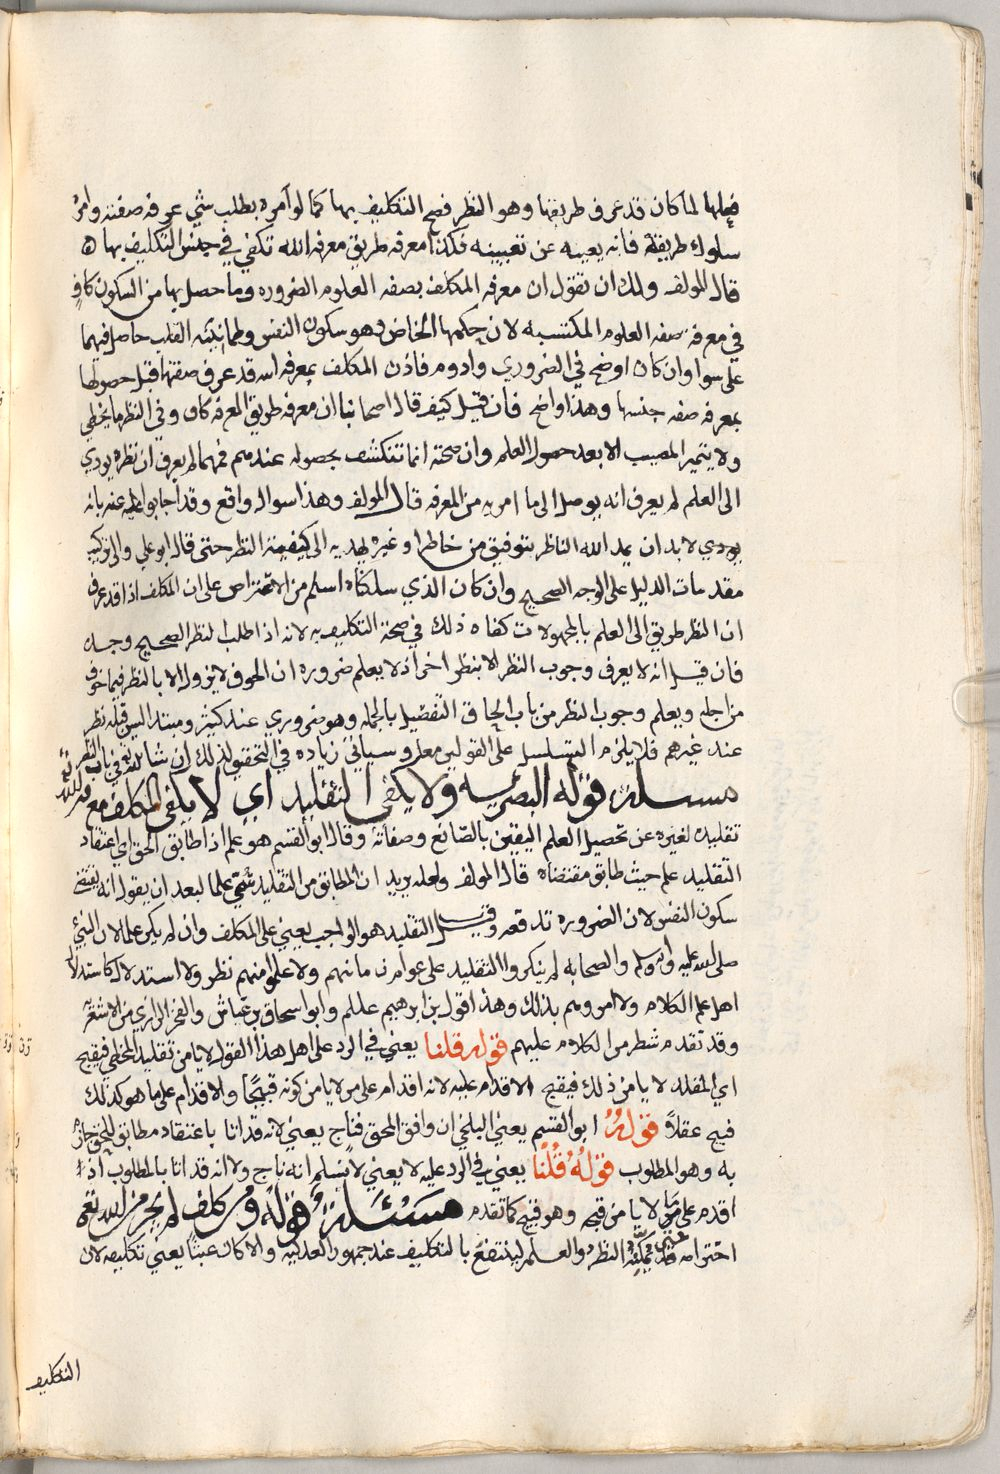 فعلها لما كان قد عرف طريقها وهو النظر فصح التكليف بها كما لو امره بطلب شي عرفه صفته وامر
سلوك طريقة فانه يغنيه عن تعيينه فكذا معرفه طريق معرفه الله تكفي في حسن التكليف بها ه
قال المولف ولك ان تقول ان معرفه المكلف بصفه العلوم الضروره وما حصل بها من السكون كافٍ
في معرفة صفه العلوم المكتسبه لان حكمها الخاص وهو سكون النفس وطمانينه القلب حاصل فيهما
على سوا وان كان اوضح في الضروري وادوم فاذن المكلف بمعرفه الله قد عرف صفتها قبل حصولها
بمعرفه صفه جنسها وهذا واضح فان قيل كيف قال اصحابنا ان معرفه طريق المعرفه كاف وفي النظر ما يخطي
ولا يتميز المصيب الا بعد حصول العلم وان صحته انما تنكشف بحصوله عندهم فمهما لم يعرف ان نظره يودي
الى العلم لم يعرف انه يوصل الى ما امر به من المعرفه قال المولف وهذا سوال واقع وقد اجابوا عنه بانه
لا بد ان يمد الله الناظر بتوفيق من خاطر او غيره يهديه الى كيفية النظر حتى قال ابو علي والى تركيب
مقدمات الدليل على الوجه الصحيح وان كان الذي سلكناه اسلم من الاعتراض على ان المكلف اذا قد عرف
ان النظر طريق الى العلم بالمجهولات كفاه ذلك في صحة التكليف به لانه اذا طلب النظر الصحيح وجده
فان قيل انه لا يعرف وجوب النظر الا بنظر اخر اذ لا يعلم ضروره ان الخوف لا يزول الا بالنظر فيما خوف
من اجله ويعلم وجوب النظر من باب الحاق التفصيل بالجمله وهو ضروري عند كثير ومبتدا ليس قبله نظر
عند غيرهم فلا يلزم التسلسل على القولين معا وسياتي زياده في التحقيق لذلك ان شا الله في باب النظر
مسئلة قوله البصريه ولا يكفي التقليد اي لا يكفي المكلف مع
تقليده لغيره عن تحصيل العلم اليقين بالصانع وصفاته وقال ابو القسم هو علم اذا طابق الحق اي اعتقاد
التقليد علم حيث طابق مقتضاه قال المولف ولعله يريد ان المطابق من التقليد سمي علما لبعد ان يقول انه يقتضي
سكون النفس لان الضروره تدفعه وقيل التقليد هو الواجب يعني على المكلف وان لم يكن علما لان النبي
صلى الله عليه واله وسلم والصحابه لم ينكروا التقليد على عوام زمانهم ولا علموا منهم نظر ولا استدلال كاستدلال
اهل علم الكلام ولا امروهم بذلك وهذا قول بن ابرهيم علم وابو اسحاق بن عياش والفخر الرازي من الاشعريه
وقد تقدم شطر من الكلام عليهم قوله قلنا يعني في الرد على اهل هذا القول لا يامن تقليد المخطي فيقبح
اي المقلد لا يامن ذلك فيقبح الاقدام عليه لانه اقدام على من لا يامن كونه قبيحًا والاقدام على ما هو كذلك
قبيح عقلاً قوله ابو القسم يعني البلخي ان وافق المحق فناج يعني لانه قد اتا باعتقاد مطابق للحق جازم
به وهو المطلوب قوله قلنا يعني في الرد عليه لا يعني لا نسلم انه ناج ولا انه قد اتا بالمطلوب اذ
اقدم على ما لا يامن قبحه وهو قبيح كما تقدم مسئلة قوله ومن كلف لم يجز من الله تعالى
احترامه قبل تمكنه النظر والعلم لينتفع بالتكليف عند جمهور العدليه والا كان عبثا يعني تكليفه لان
التكليف